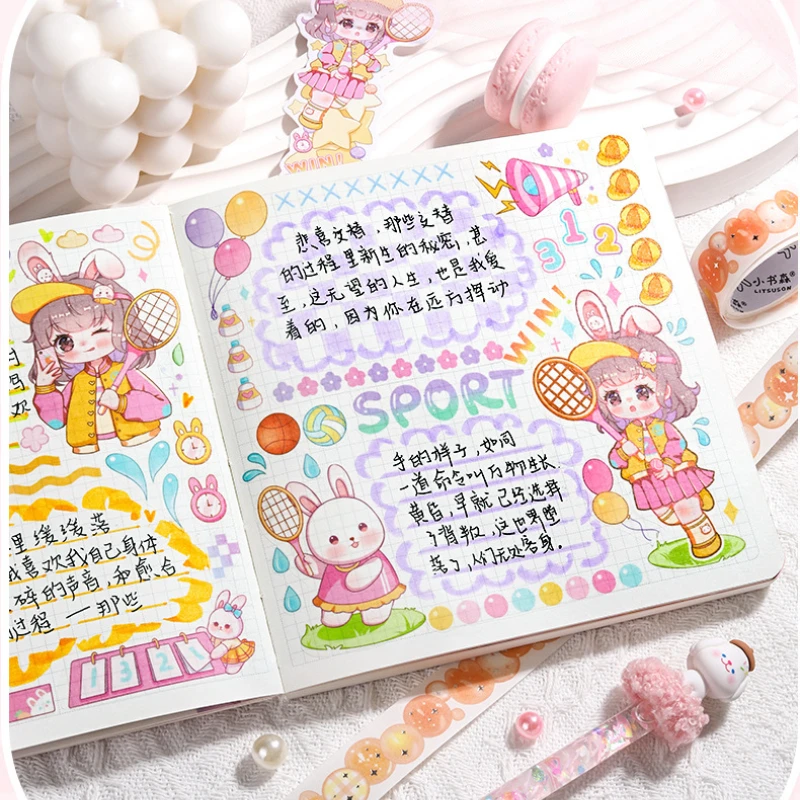 WIN!
欢
里缓缓落
我喜欢我自己身体
碎的声音,和愈合
过程 — 那些
1 3 2 1
悲喜交替,那些交替
的过程里新生的秘密,甚
至,这无望的人生,也是我爱
着的,因为你在远方挥动
3 1 2
WIN!
SPORT
手的样子,如同
一道命令叫万物生长.
黄昏,早就已经选择
了背叛,这世界塌
落了,人们无处容身。
小书森
LITSUSON